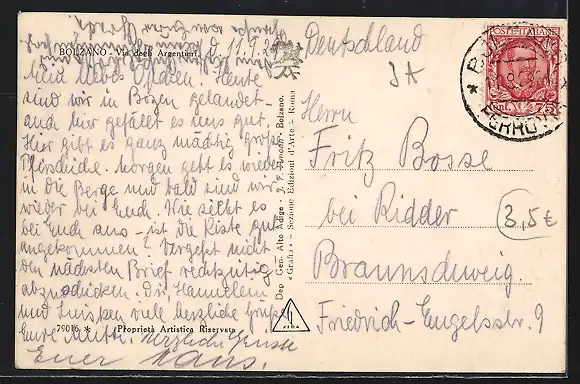 BOLZANO - Via degli Argentieri
d. 11.9.
Mein liebes Goldern. Heute
sind wir in Bozen gelandet
und hier gefällt es uns gut.
Hier gibt es ganz mächtig große
Pfirsiche. Morgen geht es wieder
in die Berge und bald sind wir
wieder bei Euch. Wie sieht es
bei Euch aus - ist die Kiste gut
angekommen? Vergeßt nicht
den nächsten Brief rechtzeitig
abzuschicken. Dir, Hannelein
und Luisken viele herzliche Grüße
Eure Mutti. Herzliche Grüsse
Euer Hans.
79016 * Proprietà Artistica Riservata
Dep. Gen. Alto Adige - J. F. Amonn - Bolzano.
« Grafia » - Sezione Edizioni d'Arte - Roma
POSTE ITALIANE
CENT. 75
FERROVIA
Deutschland
Herrn
Fritz Bosse
bei Ridder
Braunschweig.
Friedrich-Engelsstr. 9
3,5 €